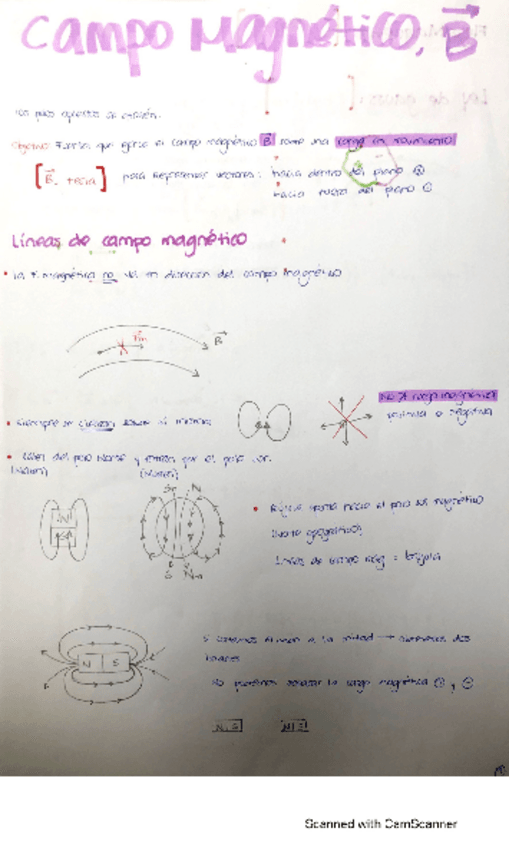 Campo Magnético, B
Objetivo: Fuerza que ejerce el campo magnético B sobre una carga en movimiento
[B = tesla] para representar vectores: hacia dentro del plano ⊗
hacia fuera del plano ⊙
Líneas de campo magnético
• La F. magnética no va en dirección del campo magnético
Fm
B
• Siempre se cierran sobre sí mismas
No ∃ carga magnética
positiva o negativa
• Salen del polo Norte y entran por el polo sur.
(Nacen) (Mueren)
N
S
N
S
• Brújula apunta hacia el polo sur magnético
(Norte geográfico)
Líneas de campo mag = brújula
N S
Si cortamos el imán a la mitad → obtenemos dos
imanes
No podemos separar la carga magnética ⊕ y ⊖
N S N S
Scanned with CamScanner